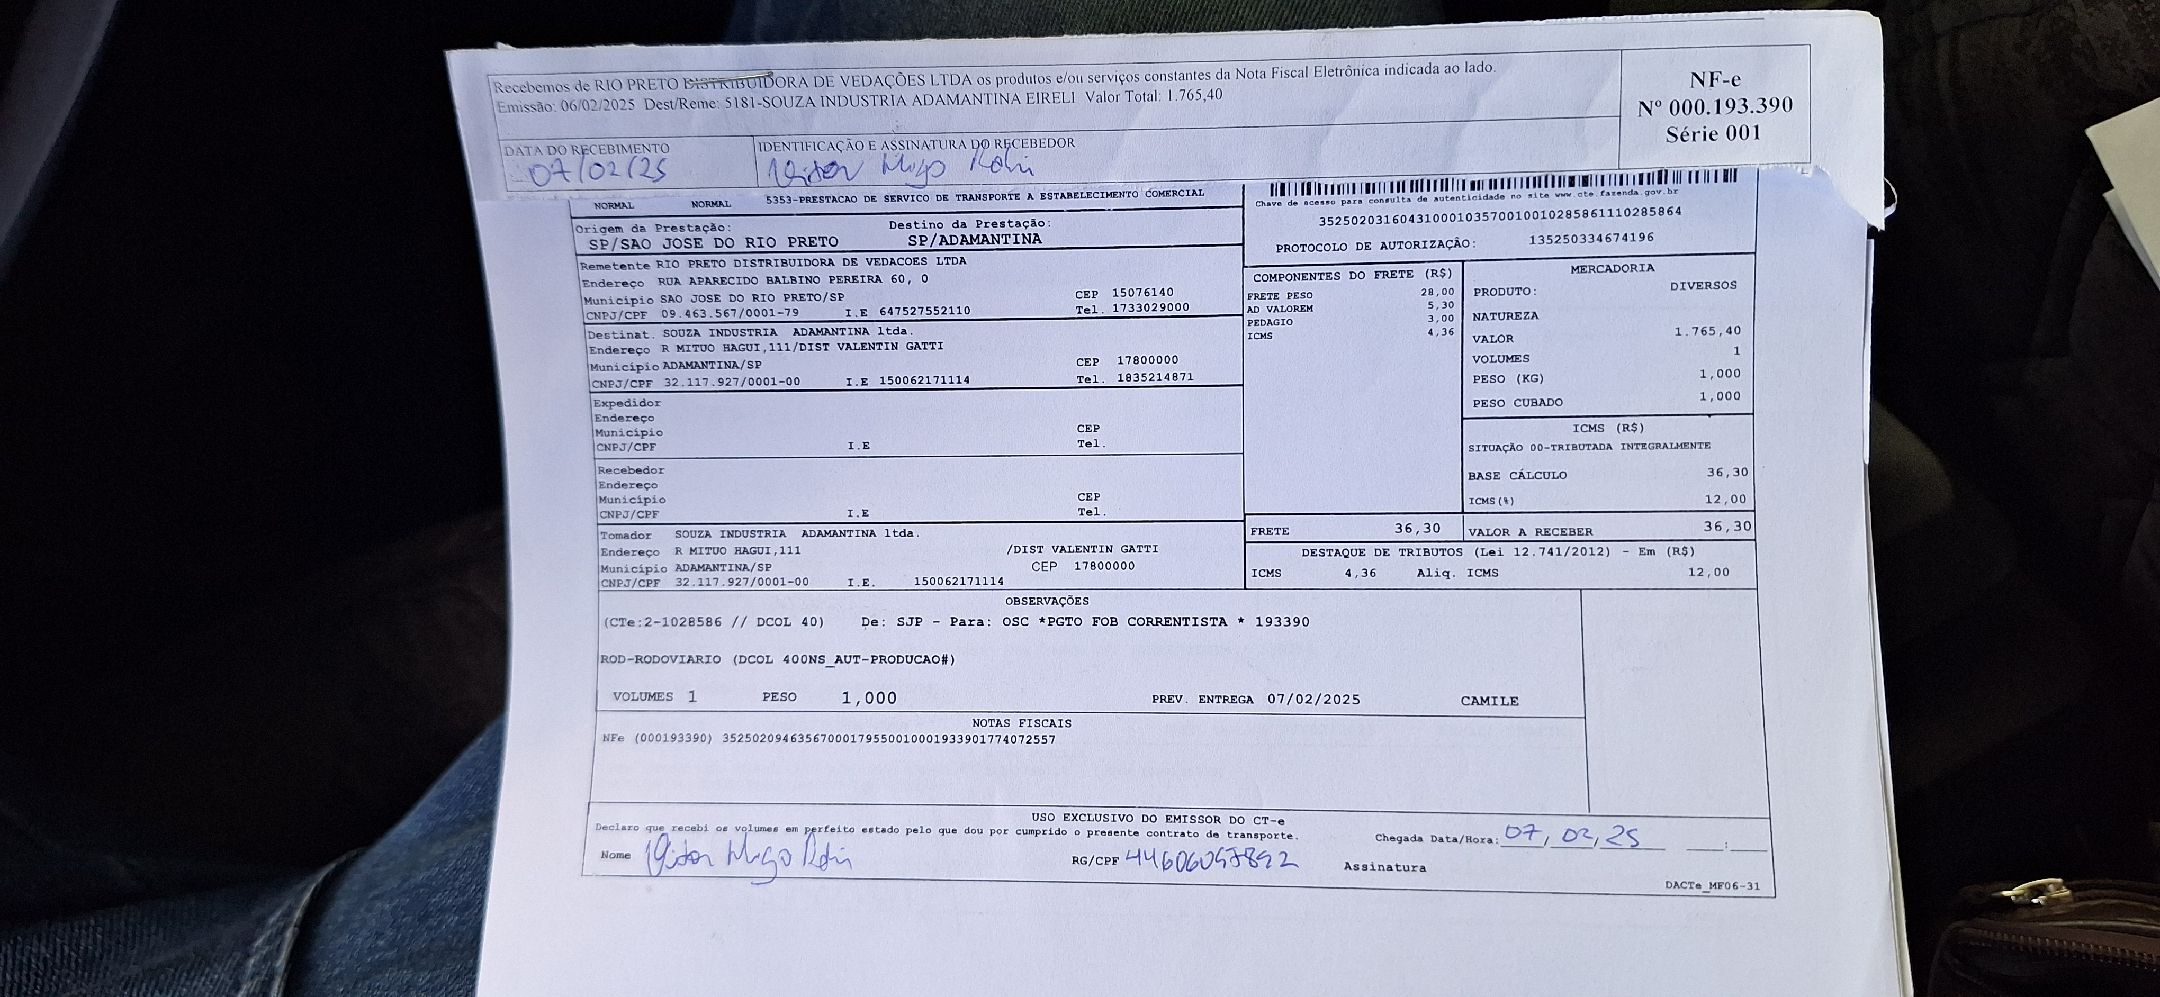 Recebemos de RIO PRETO DISTRIBUIDORA DE VEDAÇÕES LTDA os produtos e/ou serviços constantes da Nota Fiscal Eletrônica indicada ao lado.
Emissão: 06/02/2025 Dest/Reme: 5181-SOUZA INDUSTRIA ADAMANTINA EIRELI Valor Total: 1.765,40
NF-e
Nº 000.193.390
Série 001
DATA DO RECEBIMENTO
07/02/25
IDENTIFICAÇÃO E ASSINATURA DO RECEBEDOR
NORMAL NORMAL 5353-PRESTACAO DE SERVICO DE TRANSPORTE A ESTABELECIMENTO COMERCIAL
Chave de acesso para consulta de autenticidade no site www.cte.fazenda.gov.br
35250203160431000103570010010285861110285864
PROTOCOLO DE AUTORIZAÇÃO: 135250334674196
Origem da Prestação: Destino da Prestação:
SP/SAO JOSE DO RIO PRETO SP/ADAMANTINA
Remetente RIO PRETO DISTRIBUIDORA DE VEDACOES LTDA
Endereço RUA APARECIDO BALBINO PEREIRA 60, 0
Município SAO JOSE DO RIO PRETO/SP CEP 15076140
CNPJ/CPF 09.463.567/0001-79 I.E 647527552110 Tel. 1733029000
Destinat. SOUZA INDUSTRIA ADAMANTINA ltda.
Endereço R MITUO HAGUI,111/DIST VALENTIN GATTI
Município ADAMANTINA/SP CEP 17800000
CNPJ/CPF 32.117.927/0001-00 I.E 150062171114 Tel. 1835214871
Expedidor
Endereço
Município CEP
CNPJ/CPF I.E Tel.
Recebedor
Endereço
Município CEP
CNPJ/CPF I.E Tel.
Tomador SOUZA INDUSTRIA ADAMANTINA ltda.
Endereço R MITUO HAGUI,111 /DIST VALENTIN GATTI
Município ADAMANTINA/SP CEP 17800000
CNPJ/CPF 32.117.927/0001-00 I.E. 150062171114
COMPONENTES DO FRETE (R$)
FRETE PESO 28,00
AD VALOREM 5,30
PEDAGIO 3,00
ICMS 4,36
MERCADORIA
PRODUTO: DIVERSOS
NATUREZA
VALOR 1.765,40
VOLUMES 1
PESO (KG) 1,000
PESO CUBADO 1,000
ICMS (R$)
SITUAÇÃO 00-TRIBUTADA INTEGRALMENTE
BASE CÁLCULO 36,30
ICMS(%) 12,00
FRETE 36,30 VALOR A RECEBER 36,30
DESTAQUE DE TRIBUTOS (Lei 12.741/2012) - Em (R$)
ICMS 4,36 Aliq. ICMS 12,00
OBSERVAÇÕES
(CTe:2-1028586 // DCOL 40) De: SJP - Para: OSC *PGTO FOB CORRENTISTA * 193390
ROD-RODOVIARIO (DCOL 400NS_AUT-PRODUCAO#)
VOLUMES 1 PESO 1,000 PREV. ENTREGA 07/02/2025 CAMILE
NOTAS FISCAIS
NFe (000193390) 35250209463567000179550010001933901774072557
USO EXCLUSIVO DO EMISSOR DO CT-e
Declaro que recebi os volumes em perfeito estado pelo que dou por cumprido o presente contrato de transporte.
Chegada Data/Hora: 07, 02, 25 __:__
Nome RG/CPF Assinatura
DACTe_MF06-31